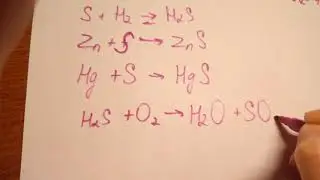 S + H₂ ⇄ H₂S
Zn + S → ZnS
Hg + S → HgS
H₂S + O₂ → H₂O + SO